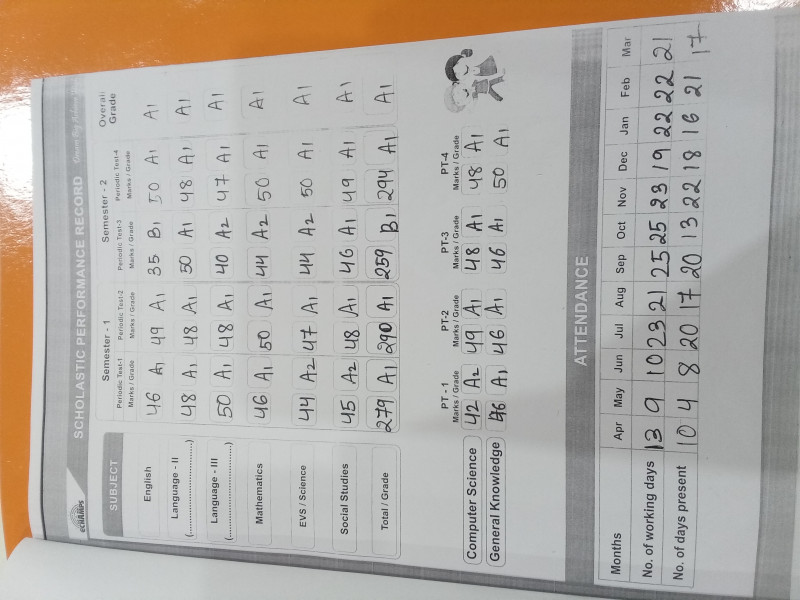 ECHAMPS
SCHOLASTIC PERFORMANCE RECORD
SUBJECT Semester - 1 Semester - 2 Overall Grade
Periodic Test-1 Periodic Test-2 Periodic Test-3 Periodic Test-4
Marks / Grade Marks / Grade Marks / Grade Marks / Grade
English 46 A1 49 A1 35 B1 50 A1 A1
Language - II (........................) 48 A1 48 A1 50 A1 48 A1 A1
Language - III (........................) 50 A1 48 A1 40 A2 47 A1 A1
Mathematics 46 A1 50 A1 44 A2 50 A1 A1
EVS / Science 44 A2 47 A1 44 A2 50 A1 A1
Social Studies 45 A2 48 A1 46 A1 49 A1 A1
Total / Grade 279 A1 290 A1 259 B1 294 A1 A1
PT - 1 PT-2 PT-3 PT-4
Marks / Grade Marks / Grade Marks / Grade Marks / Grade
Computer Science 42 A2 49 A1 48 A1 48 A1
General Knowledge 46 A1 46 A1 46 A1 50 A1
ATTENDANCE
Months Apr May Jun Jul Aug Sep Oct Nov Dec Jan Feb Mar
No. of working days 13 9 10 23 21 25 25 23 19 22 22 21
No. of days present 10 4 8 20 17 20 13 22 18 16 21 17